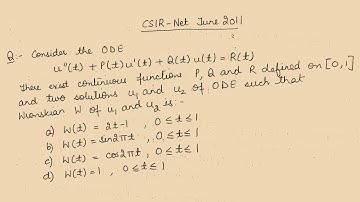 CSIR-Net June 2011
Q:- Consider the ODE
u''(t) + P(t) u'(t) + Q(t) u(t) = R(t)
There exist continuous functions P, Q and R defined on [0,1]
and two solutions u₁ and u₂ of ODE such that
Wronskian W of u₁ and u₂ is:-
a) W(t) = 2t-1 , 0≤t≤1
b) W(t) = sin2πt , 0≤t≤1
c) W(t) = cos2πt , 0≤t≤1
d) W(t)=1 , 0≤t≤1